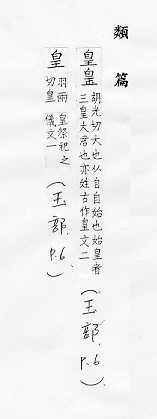 類篇
皇皇 胡光切大也从自自始也始皇者
三皇大君也亦姓古作皇文二
(玉部. P.6).
皇 羽兩切皇 皇祭祀之儀文一
(玉部. P.6)